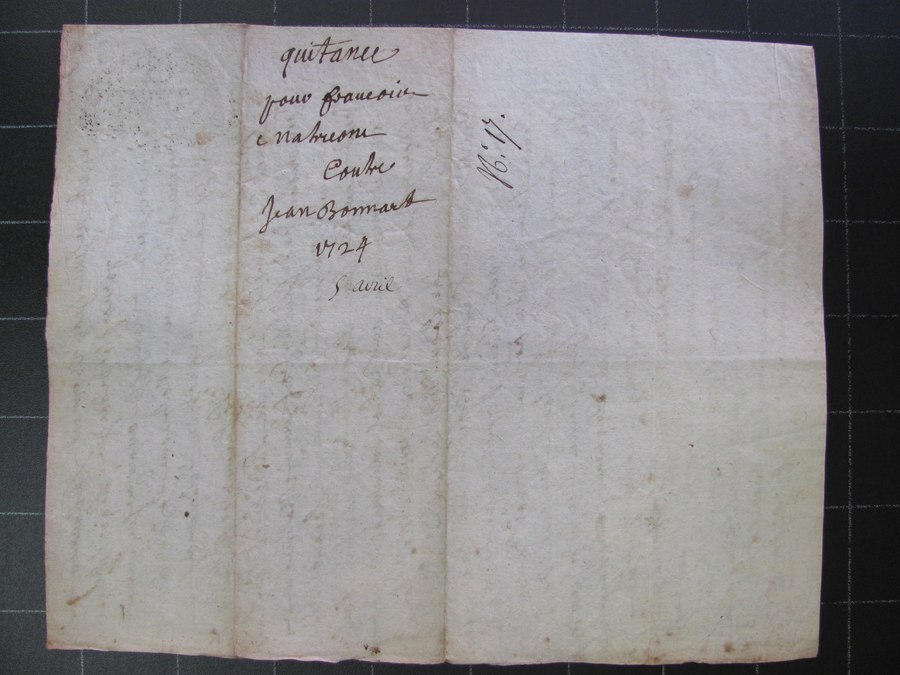 quitance
pour francoise
Contre
Jean Bonnart
1724
5 avril
N.° 17.